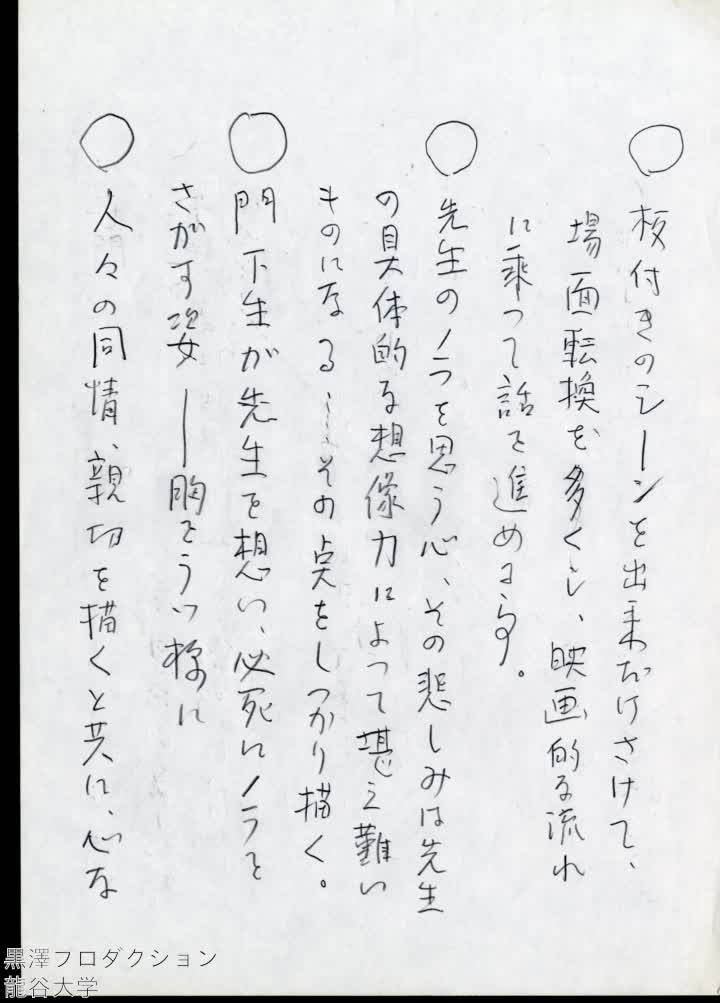 ○ 板付きのシーンを出来だけさけて、
場面転換を多くし、映画的な流れ
に乗って話を進める事。
○ 先生のノラを思う心、その悲しみは先生
の具体的な想像力によって堪え難い
ものになる……その点をしっかり描く。
○ 門下生が先生を想い、必死にノラを
さがす姿――胸をうつ様に
○ 人々の同情、親切を描くと共に、心な
黒澤プロダクション
龍谷大学